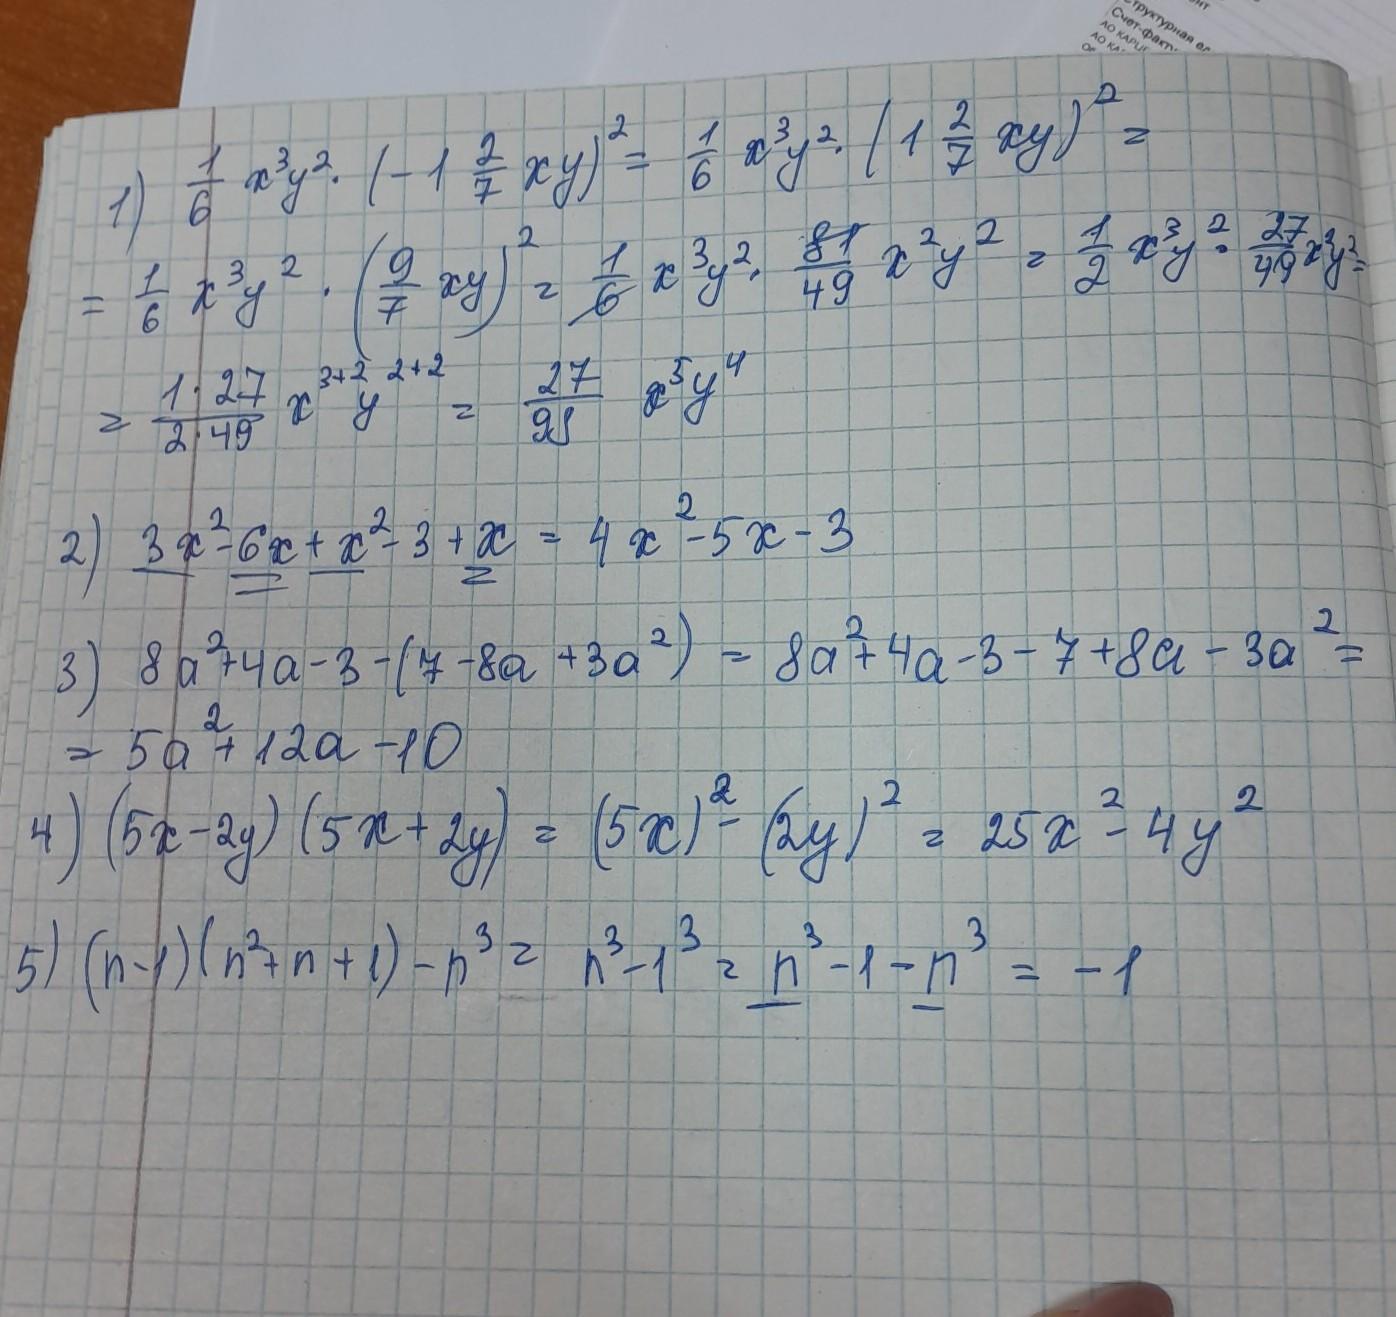 структурная ед
Счет-факту
АО КАРЦ
АО КА
1) 1/6 x³y² · (-1 2/7 xy)² = 1/6 x³y² · (1 2/7 xy)² =
= 1/6 x³y² · (9/7 xy)² = 1/6 x³y² · 81/49 x²y² = 1/2 x³y² · 27/49 x²y² =
= 1·27/2·49 x³⁺² y²⁺² = 27/98 x⁵y⁴
2) 3x² - 6x + x² - 3 + x = 4x² - 5x - 3
3) 8a² + 4a - 3 - (7 - 8a + 3a²) = 8a² + 4a - 3 - 7 + 8a - 3a² =
= 5a² + 12a - 10
4) (5x - 2y) (5x + 2y) = (5x)² - (2y)² = 25x² - 4y²
5) (n - 1) (n² + n + 1) - n³ = n³ - 1³ = n³ - 1 - n³ = -1